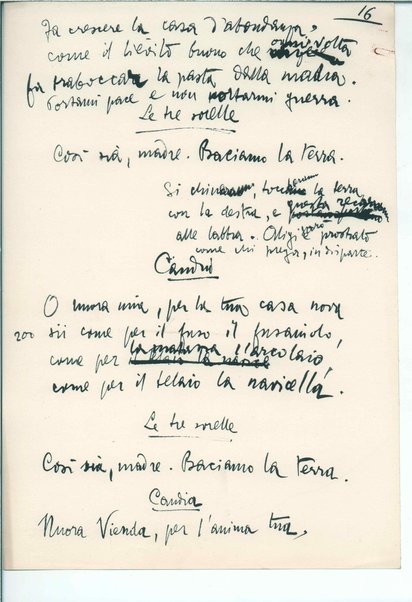 16
Fa crescere la casa d'abondanza,
come il lievito buono che ogni volta
fa traboccar la pasta dalla madia.
Portami pace e non portarmi guerra.
Le tre sorelle
Così sia, madre. Baciamo la terra.
Si chinano, toccano la terra
con la destra, e questa recano
alle labbra. Aligi è prostrato
come chi prega, in disparte.
Candia
O nuora mia, per la tua casa nova
200 sii come per il fuso il fusaiuolo,
come per la matassa l'arcolaio,
come per il telaio la navicella.
Le tre sorelle
Così sia, madre. Baciamo la terra.
Candia
Nuora Vienda, per l'anima tua,